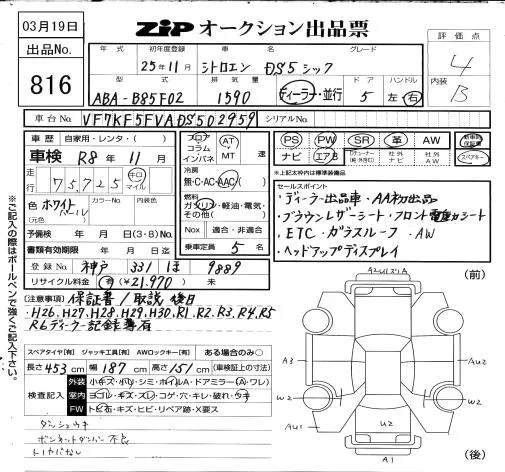 03月19日
出品No.
816
ZiP オークション出品票
評価点
4
内装
B
年式 初年度登録 車名 グレード
25年11月 シトロエン DS5シック
型式 排気量 ドア ハンドル
ABA-B85F02 1590 ディーラー・並行 5 左・右
車台No. VF7KF5FVADS502959 シリアルNo.
車歴 自家用・レンタ・( )
車検 R8年11月
走行 75,725 キロ マイル
色 ホワイトパール カラーNo. 内装色
(元色 )
予備検 年 月 日 (3・8) No.
書類有効期限 年 月 日迄
登録No. 神戸 331 ほ 9889
リサイクル料金 有 (¥21,970) 未
フロア コラム インパネ AT MT 速
冷房
無・C・AC・AAC
燃料
ガソリン・軽油・電気・その他( )
Nox 適合・非適合
乗車定員 5 名
PS PW SR 革 AW
ナビ エアB 社外ナビ 社外AW
新車時保証書
スペアキー
※上記太枠内は標準装備品
セールスポイント
・ディーラー出品車・AA初出品
・ブラウンレザーシート・フロント電動シート
・ETC・ガラスルーフ・AW
・ヘッドアップディスプレイ
(注意事項) 保証書/取説 後日
・H26.H27.H28.H29.H30.R1.R2.R3.R4.R5
R6ディーラー記録簿有
※ご記入の際はボールペンで強くご記入下さい。
スペアタイヤ[有] ジャッキ工具[有] AWロックキー[有] ある場合のみ○
長さ453cm 幅187cm 高さ151cm (車検証上の寸法)
検査記入
外装 小キズ・小凹・シミ・ホイルA・ドアミラー(A・ワレ)
室内 ヨゴレ・キズ・スレ・コゲ・穴・キレ・破れ・ウキ
FW トビ石・キズ・ヒビ・リペア跡・X要ス
ダッシュウキ
ボンネットダンパー不良
トノカバなし
(前)
A3
AU2
W2
W2
AU1
W2
A1
(後)